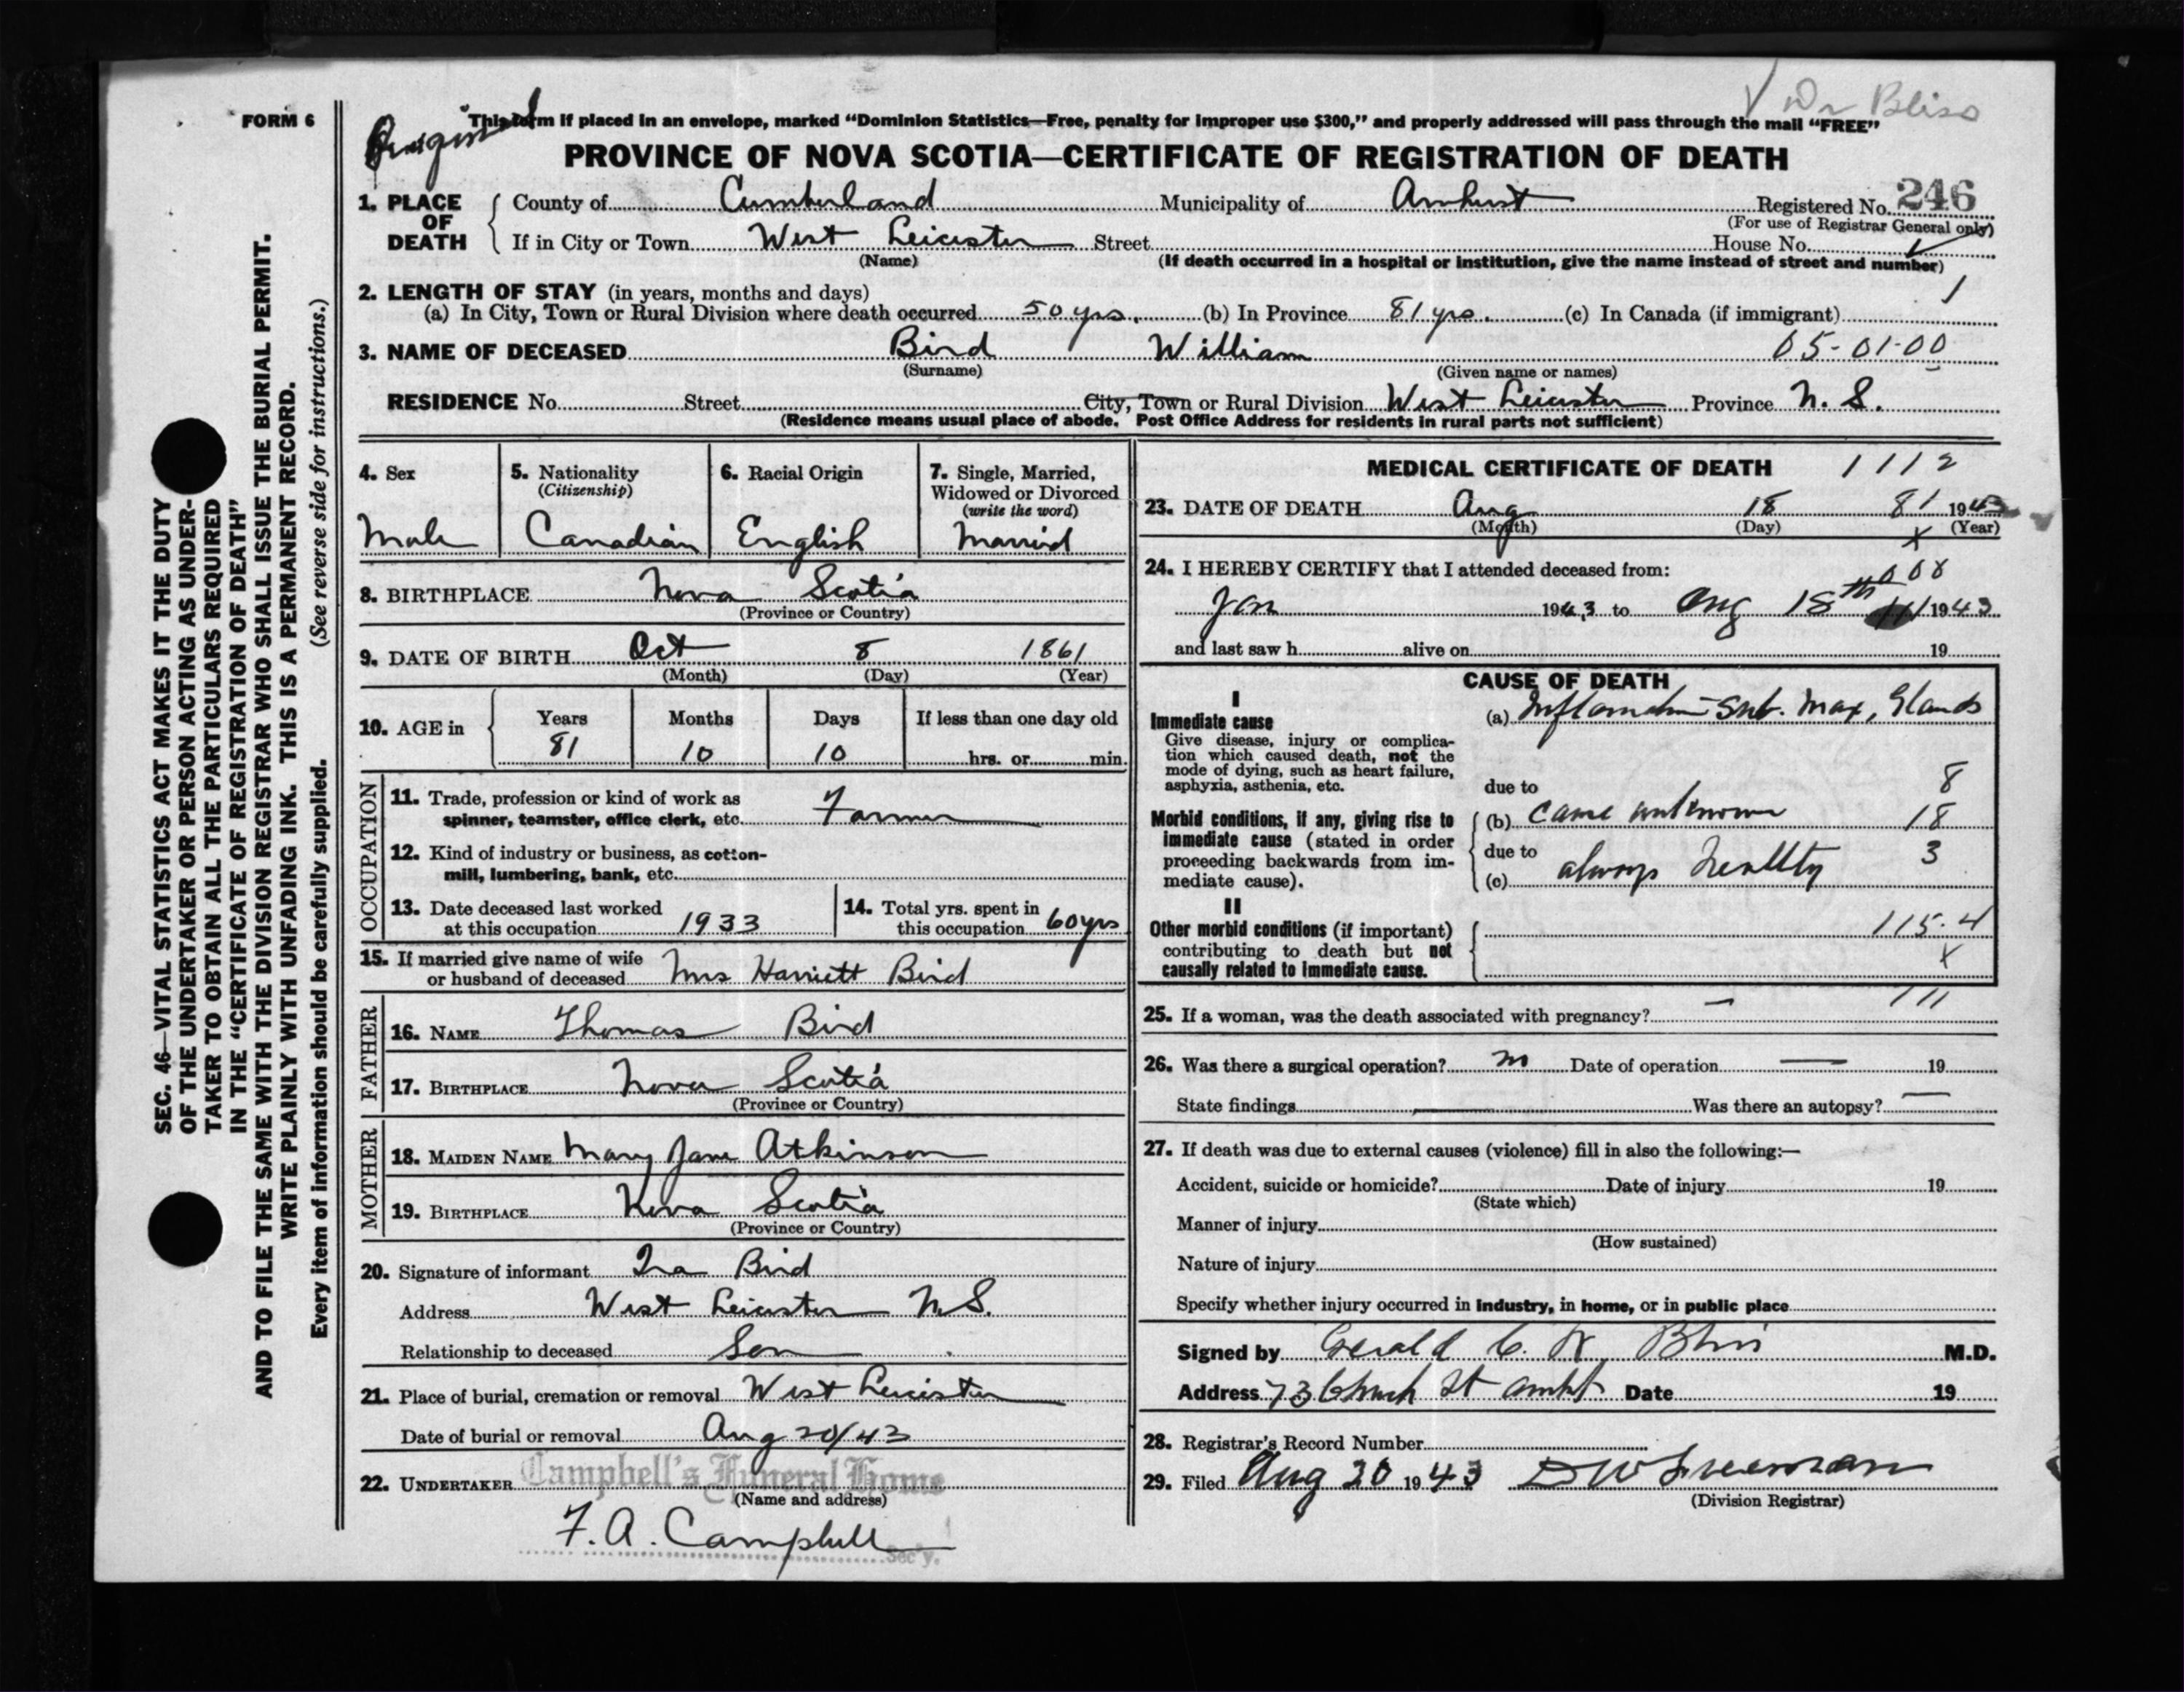 Dr Bliss
FORM 6
This form if placed in an envelope, marked "Dominion Statistics—Free, penalty for improper use $300," and properly addressed will pass through the mail "FREE"
PROVINCE OF NOVA SCOTIA—CERTIFICATE OF REGISTRATION OF DEATH
1. PLACE OF DEATH County of Cumberland Municipality of Amherst Registered No. 246
(For use of Registrar General only)
If in City or Town West Leicester Street House No.
(Name) (If death occurred in a hospital or institution, give the name instead of street and number)
2. LENGTH OF STAY (in years, months and days)
(a) In City, Town or Rural Division where death occurred 50 yrs. (b) In Province 81 yrs. (c) In Canada (if immigrant)
3. NAME OF DECEASED Bird William 05-01-00
(Surname) (Given name or names)
RESIDENCE No. Street City, Town or Rural Division West Leicester Province N. S.
(Residence means usual place of abode. Post Office Address for residents in rural parts not sufficient)
4. Sex Male
5. Nationality (Citizenship) Canadian
6. Racial Origin English
7. Single, Married, Widowed or Divorced (write the word) Married
8. BIRTHPLACE Nova Scotia
(Province or Country)
9. DATE OF BIRTH Oct 8 1861
(Month) (Day) (Year)
10. AGE in Years 81 Months 10 Days 10 If less than one day old hrs. or min.
OCCUPATION
11. Trade, profession or kind of work as
spinner, teamster, office clerk, etc. Farmer
12. Kind of industry or business, as cotton-
mill, lumbering, bank, etc.
13. Date deceased last worked
at this occupation 1933
14. Total yrs. spent in
this occupation 60 yrs
15. If married give name of wife
or husband of deceased Mrs Harriett Bird
FATHER
16. NAME Thomas Bird
17. BIRTHPLACE Nova Scotia
(Province or Country)
MOTHER
18. MAIDEN NAME Mary Jane Atkinson
19. BIRTHPLACE Nova Scotia
(Province or Country)
20. Signature of informant Ira Bird
Address West Leicester N.S.
Relationship to deceased Son
21. Place of burial, cremation or removal West Leicester
Date of burial or removal Aug 20/43
22. UNDERTAKER Campbell's Funeral Home
(Name and address)
F. A. Campbell
Sec'y.
MEDICAL CERTIFICATE OF DEATH 1112
23. DATE OF DEATH Aug 18 81 1943
(Month) (Day) (Year)
24. I HEREBY CERTIFY that I attended deceased from:
Jan 1943 to Aug 18th 1943
and last saw h alive on 19
CAUSE OF DEATH
I
Immediate cause
Give disease, injury or complica-
tion which caused death, not the
mode of dying, such as heart failure,
asphyxia, asthenia, etc.
(a) Inflamation Sub. Max, Glands
due to 8
Morbid conditions, if any, giving rise to
immediate cause (stated in order
proceeding backwards from im-
mediate cause).
(b) cause unknown 18
due to 3
(c) always healthy
II
Other morbid conditions (if important)
contributing to death but not
causally related to immediate cause.
115.4
X
111
25. If a woman, was the death associated with pregnancy? –
26. Was there a surgical operation? no Date of operation — 19
State findings — Was there an autopsy? —
27. If death was due to external causes (violence) fill in also the following:—
Accident, suicide or homicide? Date of injury 19
(State which)
Manner of injury
(How sustained)
Nature of injury
Specify whether injury occurred in industry, in home, or in public place
Signed by Gerald C. W. Bliss M.D.
Address 73 Church St Amht Date 19
28. Registrar's Record Number
29. Filed Aug 20 1943 D W Freeman
(Division Registrar)
SEC. 46—VITAL STATISTICS ACT MAKES IT THE DUTY
OF THE UNDERTAKER OR PERSON ACTING AS UNDER-
TAKER TO OBTAIN ALL THE PARTICULARS REQUIRED
IN THE "CERTIFICATE OF REGISTRATION OF DEATH"
AND TO FILE THE SAME WITH THE DIVISION REGISTRAR WHO SHALL ISSUE THE BURIAL PERMIT.
WRITE PLAINLY WITH UNFADING INK. THIS IS A PERMANENT RECORD.
Every item of information should be carefully supplied. (See reverse side for instructions.)